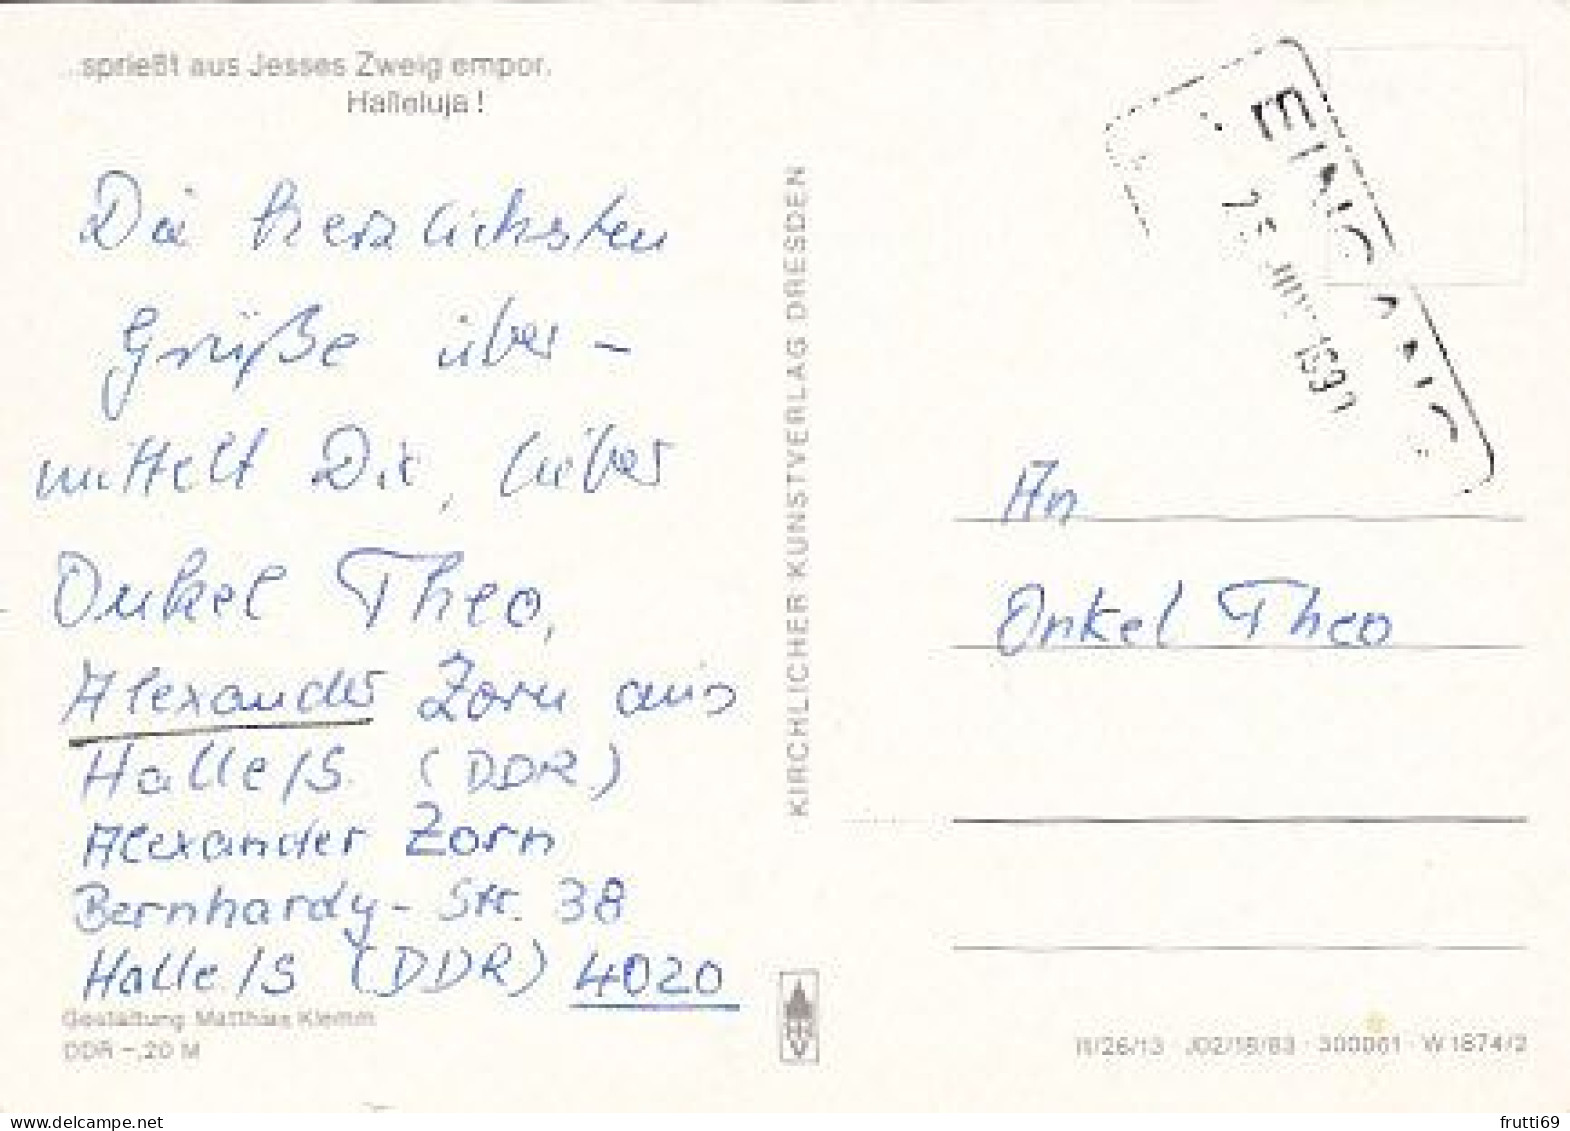 ...sprießt aus Jesses Zweig empor.
Halleluja!
Die herzlichsten
Grüße über-
mittelt Dir, lieber
Onkel Theo,
Alexander Zorn aus
Halle/S. (DDR)
Alexander Zorn
Bernhardy-Str. 38
Halle/S (DDR) 4020
Gestaltung: Matthias Klemm
DDR -,20 M
KIRCHLICHER KUNSTVERLAG DRESDEN
EINGANG
An
Onkel Theo
III/26/13 · J02/18/83 · 300061 · W 1874/2
frutti69